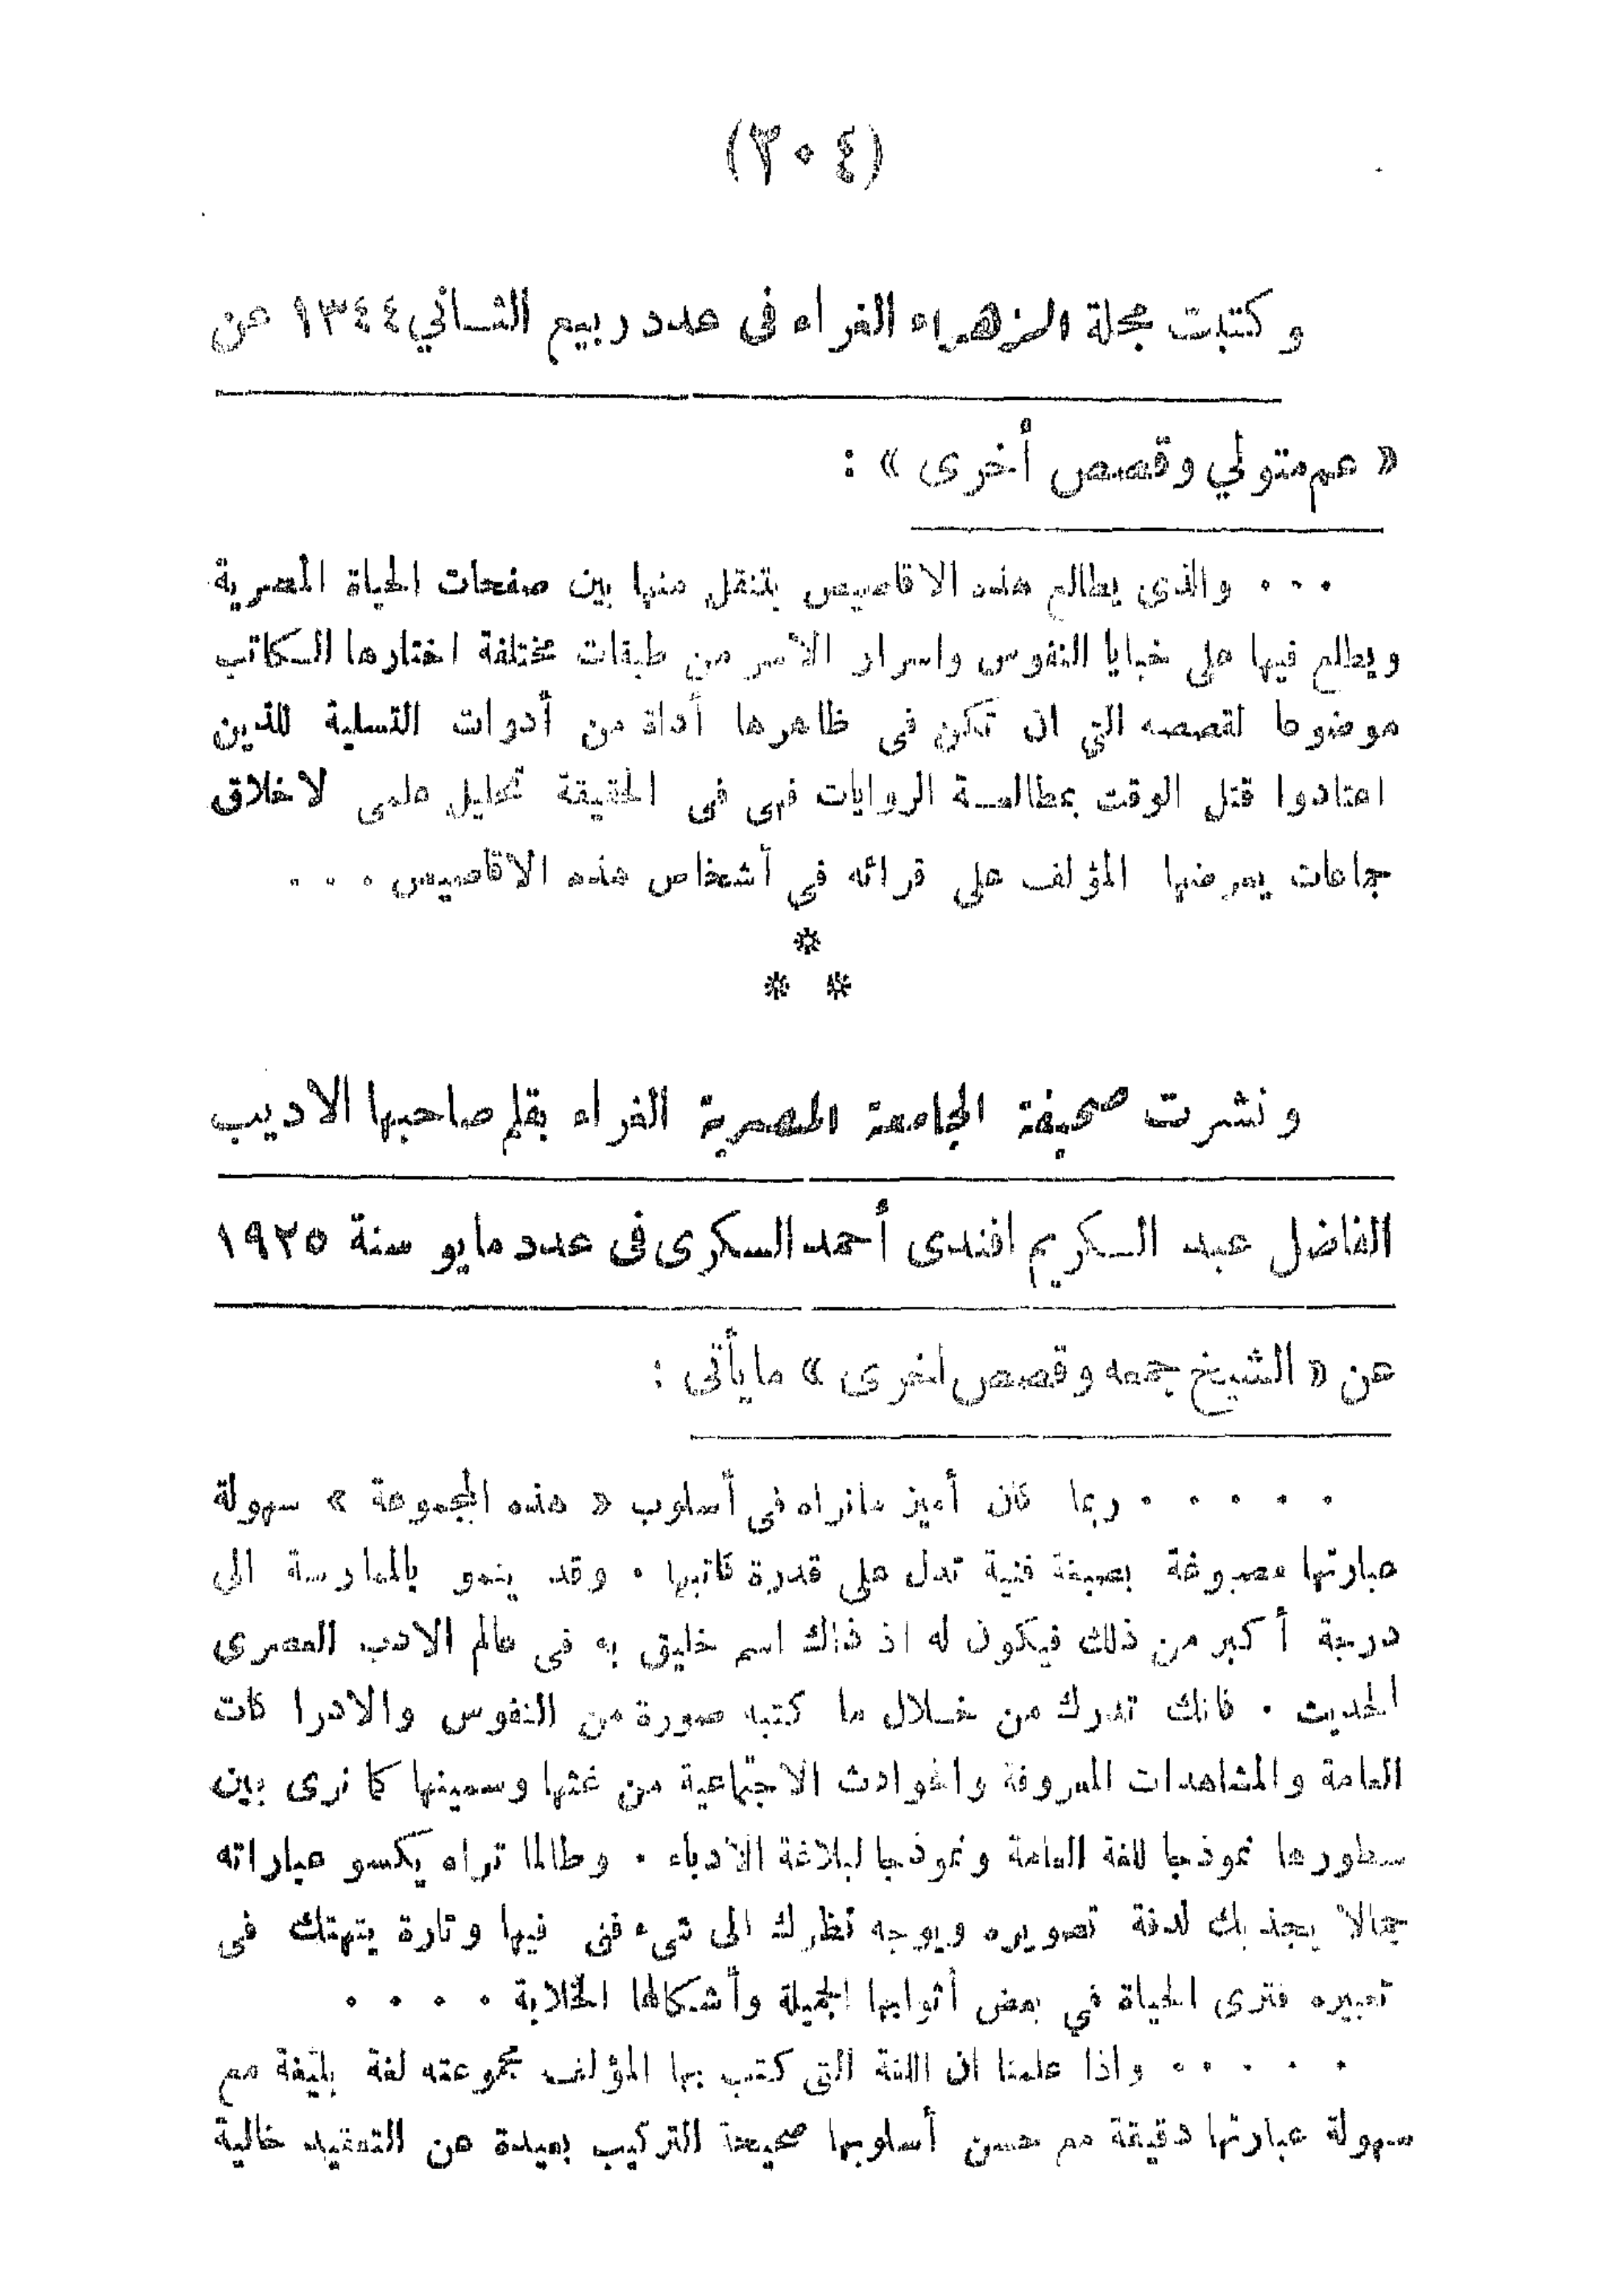 (٣٠٤)
وكتبت مجلة الزهراء الغراء فى عدد ربيع الثاني ١٣٤٤ عن
« عم متولي وقصص أخرى » :
... والذى يطالع هذه الاقاصيص يتنقل منها بين صفحات الحياة المصرية
ويطلع فيها على خبايا النفوس واسرار الأسر من طبقات مختلفة اختارها الكاتب
موضوعا لقصصه التي ان تكن في ظاهرها أداة من أدوات التسلية للذين
اعتادوا قتل الوقت بمطالعة الروايات فهى فى الحقيقة تحليل علمى لاخلاق
جماعات يعرضها المؤلف على قرائه في أشخاص هذه الاقاصيص . . . .
*
* *
ونشرت صحيفة الجامعة المصرية الغراء بقلم صاحبها الاديب
الفاضل عبد الكريم افندى أحمد السكرى فى عدد مايو سنة ١٩٢٥
عن « الشيخ جمعه وقصص اخرى » مايأتى :
. . . . . ربما كان أميز مانراه فى أسلوب « هذه المجموعة » سهولة
عبارتها مصبوغة بصبغة فنية تدل على قدرة كاتبها . وقد ينمو بالممارسة الى
درجة أكبر من ذلك فيكون له اذ ذاك اسم خليق به فى عالم الادب العصرى
الحديث . فانك تدرك من خلال ما كتبه صورة من النفوس والادراكات
العامة والمشاهدات المعروفة والحوادث الاجتماعية من غثها وسمينها كما نرى بين
سطورها نموذجا للغة العامة ونموذجا لبلاغة الأدباء . وطالما تراه يكسو عباراته
جمالا يجذبك لدقة تصويره ويوجه نظرك الى شىء فنى فيها وتارة يتهتك فى
تعبيره فترى الحياة في بعض أثوابها الجميلة وأشكالها الخلابة . . . .
. . . . . واذا علمنا ان اللغة التى كتب بها المؤلف مجموعته لغة بليغة مع
سهولة عبارتها دقيقة مع حسن أسلوبها صحيحة التركيب بعيدة عن التعقيد خالية